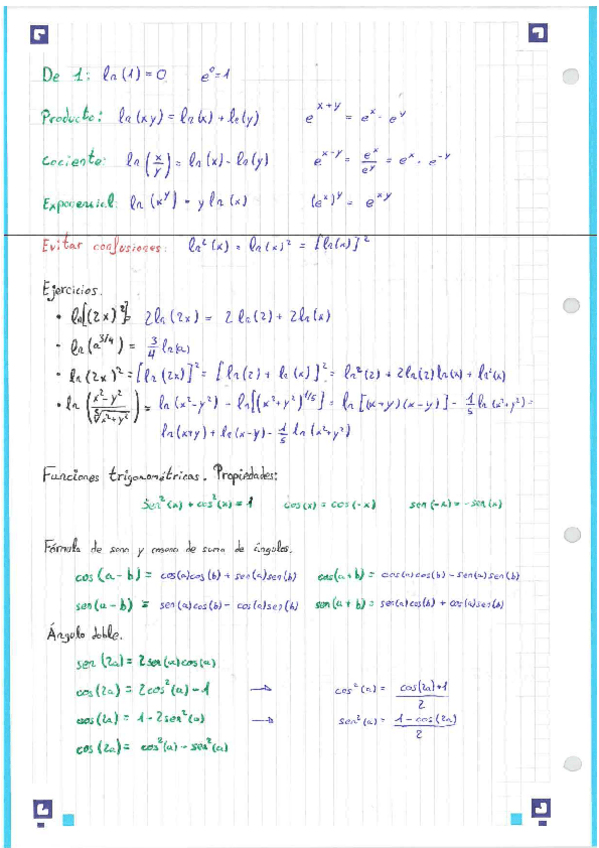 De 1: ln(1)=0 e⁰=1
Producto: ln(xy) = ln(x) + ln(y) e^(x+y) = e^x · e^y
Cociente: ln(x/y) = ln(x) - ln(y) e^(x-y) = e^x/e^y = e^x · e^-y
Exponencial: ln(x^y) = y ln(x) (e^x)^y = e^xy
Evitar confusiones: ln²(x) = ln(x)² = [ln(x)]²
Ejercicios.
• ln[(2x)²] = 2ln(2x) = 2ln(2) + 2ln(x)
• ln(a^3/4) = 3/4 ln(a)
• ln(2x)² = [ln(2x)]² = [ln(2) + ln(x)]² = ln²(2) + 2ln(2)ln(x) + ln²(x)
• ln((x²-y²)/⁵√(x²+y²)) = ln(x²-y²) - ln[(x²+y²)^1/5] = ln[(x+y)(x-y)] - 1/5 ln(x²+y²) =
ln(x+y) + ln(x-y) - 1/5 ln(x²+y²)
Funciones trigonométricas. Propiedades:
sen²(x) + cos²(x) = 1 cos(x) = cos(-x) sen(-x) = -sen(x)
Fórmula de seno y coseno de suma de ángulos.
cos(a-b) = cos(a)cos(b) + sen(a)sen(b) cos(a+b) = cos(a)cos(b) - sen(a)sen(b)
sen(a-b) = sen(a)cos(b) - cos(a)sen(b) sen(a+b) = sen(a)cos(b) + cos(a)sen(b)
Ángulo doble.
sen(2a) = 2sen(a)cos(a)
cos(2a) = 2cos²(a) - 1 → cos²(a) = (cos(2a)+1)/2
cos(2a) = 1 - 2sen²(a) → sen²(a) = (1-cos(2a))/2
cos(2a) = cos²(a) - sen²(a)